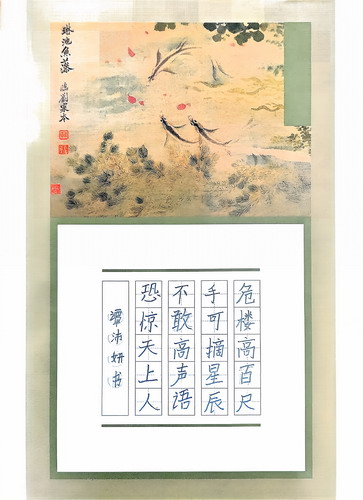 琳池魚藻
臨劉寀本
危楼高百尺
手可摘星辰
不敢高声语
恐惊天上人
沛妍书